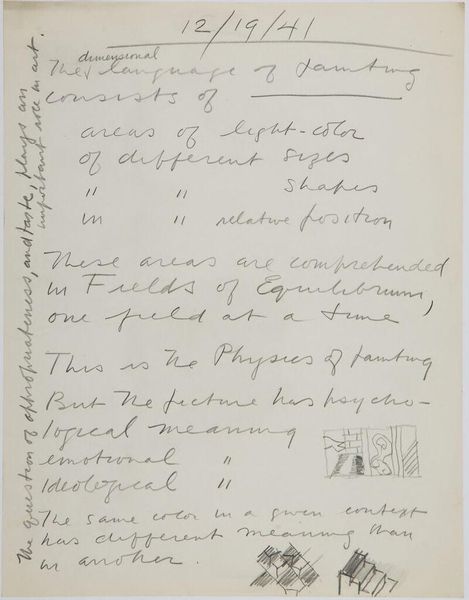 12/19/41
dimensional
The language of painting
consists of
areas of light-color
of different sizes
" " shapes
in " relative position
These areas are comprehended
in Fields of Equilibrium,
one field at a time
This is the Physics of painting
But the picture has psycho-
logical meaning
emotional "
Ideological "
The same color in a given context
has different meaning than
in another.
The question of appropriateness, and taste, plays an
important role in art.